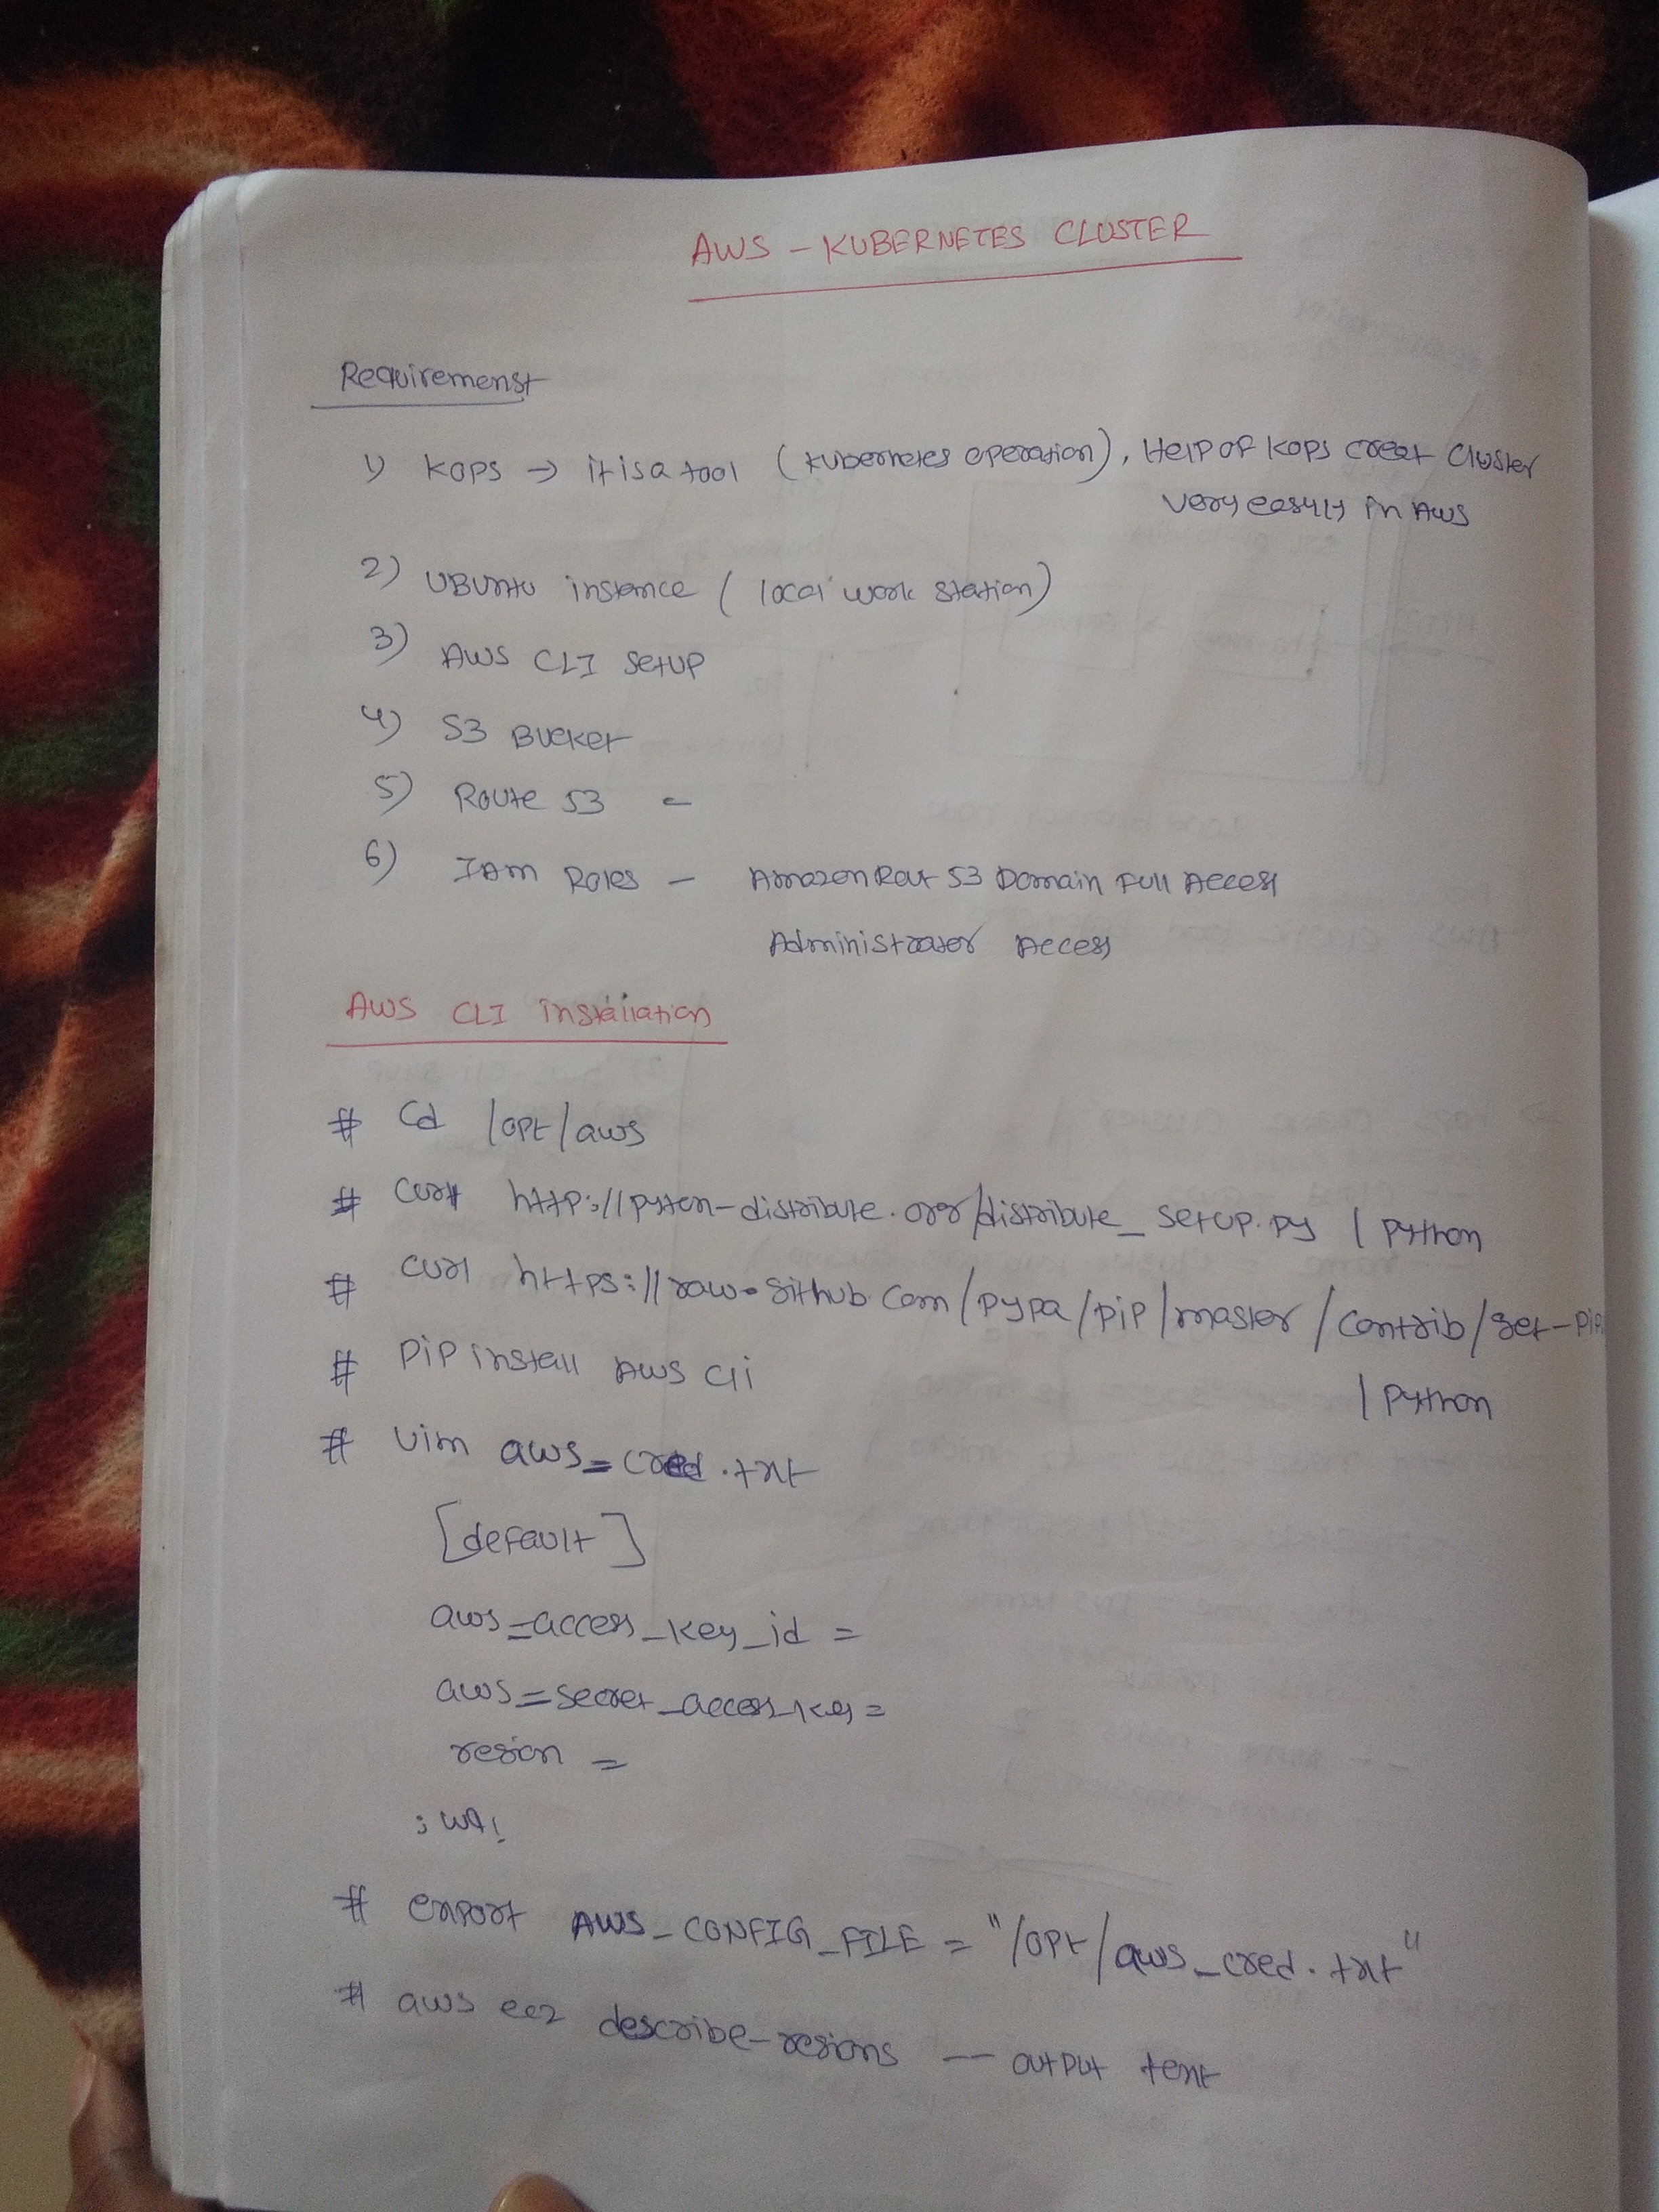 AWS - KUBERNETES CLUSTER
Requiremenst
1) KOPS → it is a tool (kubernetes operation), Help of KOPS creat Cluster
very easyly in AWS
2) UBUNTU instance ( local work station)
3) AWS CLI SetUP
4) S3 Bucket
5) Route 53 -
6) IAM Roles - Amazon Rout 53 Domain Full Access
Administrator Access
AWS CLI installation
# Cd /opt/aws
# Curl http://pyten-distribute.org/distribute_setup.py | python
# curl https://raw.github.com/pypa/pip/master/contrib/get-pip
| python
# pip install AWS cli
# vim aws_cred.txt
[default]
aws_access_key_id =
aws_secret_access_key =
region =
:wq!
# export AWS_CONFIG_FILE = "/opt/aws_cred.txt"
# aws ec2 describe-regions -- output text